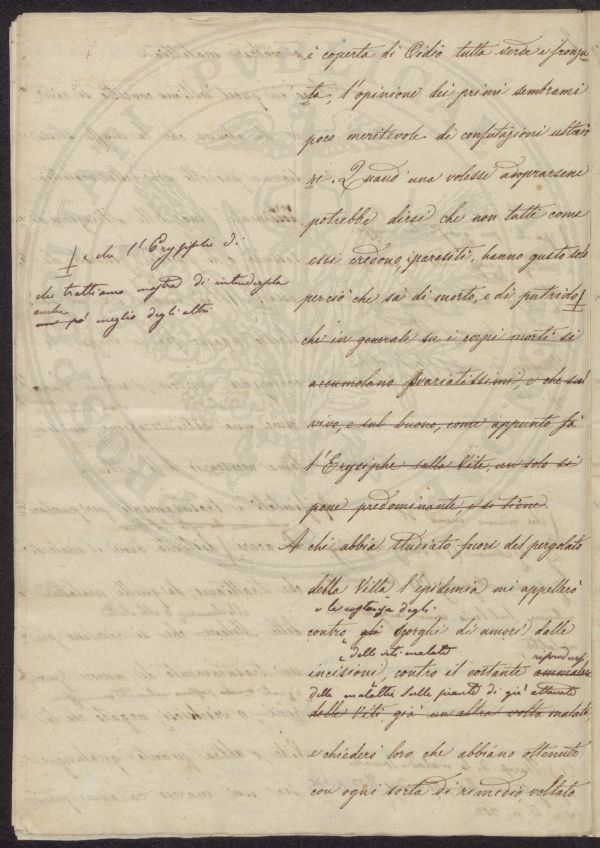 è coperta di Oidio tutta verde e fronzu-
ta, l'opinione dei primi sembrami
poco meritevole di confutazioni ulterio
ri. Quand' una volesse adoprarsene
potrebbe dirsi che non tutti come
essi credono, i parasiti, hanno gusto solo
perciò che sà di morto, e di putrido
e che l'Erysiphe di
che trattiamo mostra di intendersela
anche
un pó meglio degli altri
che in generale su i corpi morti si
accumolano svariatissimi, e che sul
vivo, e sul buono, come appunto fà
l'Erysiphe sulla Vite, un solo si
pone predominante, e si tiene.
A chi abbia studiato fuori del pergolato
della Villa l'epidemia mi appellerò
e la costanza degli
contro gli sgorghi di umori dalle
delle viti malate
incisioni, contro il costante ammalare
riprodursi
delle malattie sulle piante di già attaccate
delle Viti, già un altra volta malate,
e chiederò loro che abbiano ottenuto
con ogni sorta di rimedio, voltato